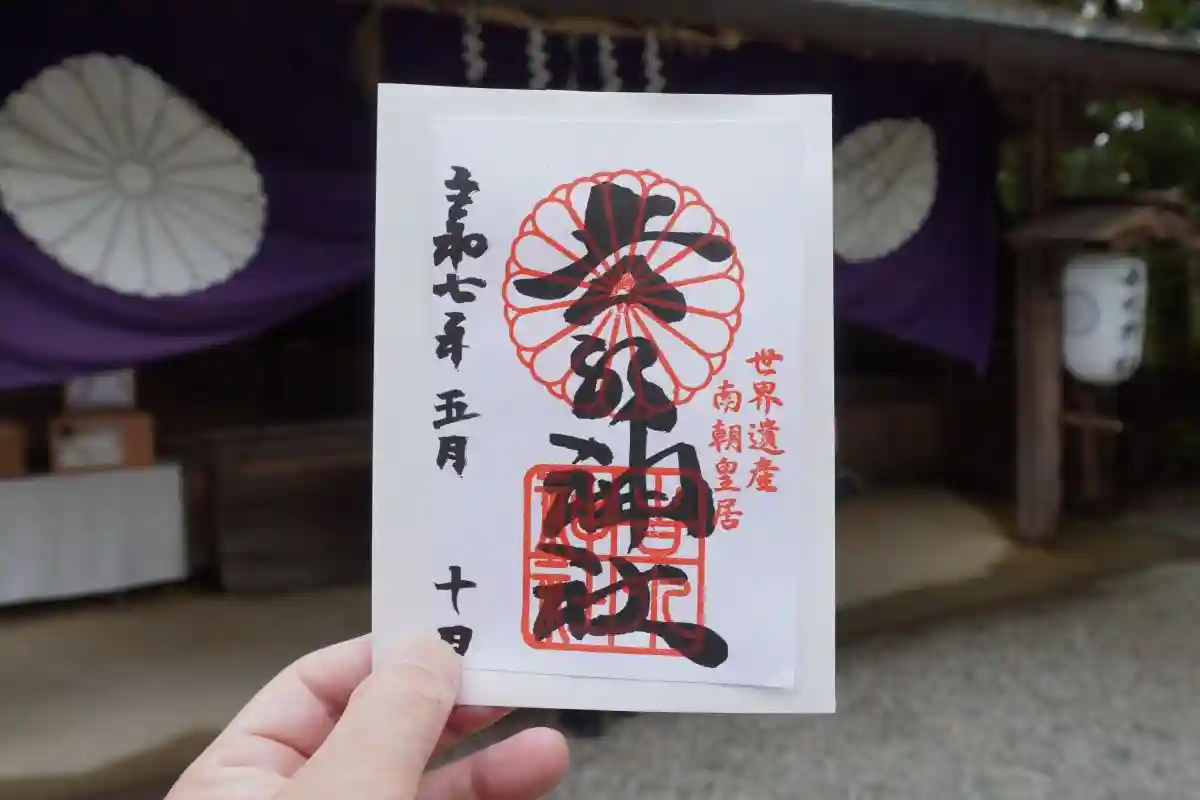 世界遺産
南朝皇居
吉水神社
吉水
神社
令和七年 五月 十日